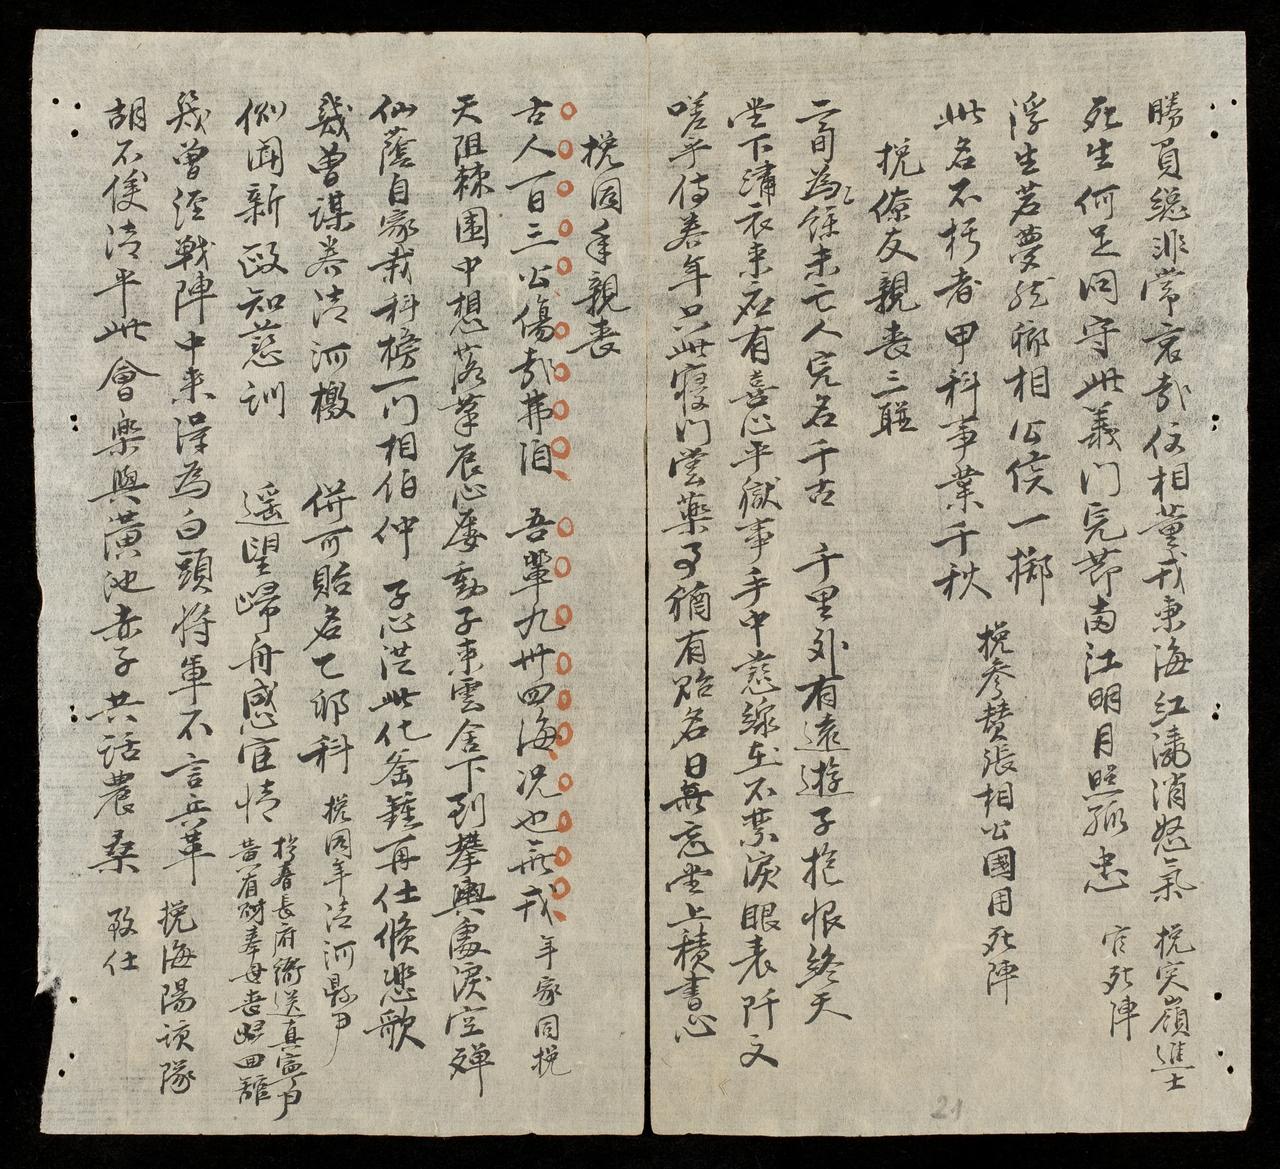 勝負總非常哀哉仗相董戎東海紅濤消怒氣 挽突嶺進士
死生何足问守此義门完節南江明月照孤忠 官死陣
浮生若夢然鄉相公侯一擲
此名不朽者甲科事業千秋 挽参赞張相公國用死陣
挽僚友親喪三联
二可為餘未亡人完名千古 千里外有遠遊子抱恨終天
堂下溝衣来应有喜心平獄事手中慈線在不禁淚眼表阡文
嗟乎侍养年只此寝门尝藥子猶有贻名日無忘堂上積書心
挽同年親丧
古人一百三公傷哉弗洎 吾輩九卅四海况也無戎 年家同挽
天阻棘围中想落筆辰心屡動子来雲舍下到攀輿處淚空殫
仙蔭自家栽科榜一门相伯仲 子心洪此化釜鍾再仕倏悲歌
幾曾谋养清河檄 併可貽名乙卯科 挽同年清河縣尹
俶闻新政知慈训 遥望歸舟感宦情 於春長府衛送真寧尹
黄有財奉母丧歸回館
幾曾經戰陣中来得為白頭将軍不言兵革 挽海陽该隊
胡不俟清平此會樂與黄池赤子共话農桑 致仕
21